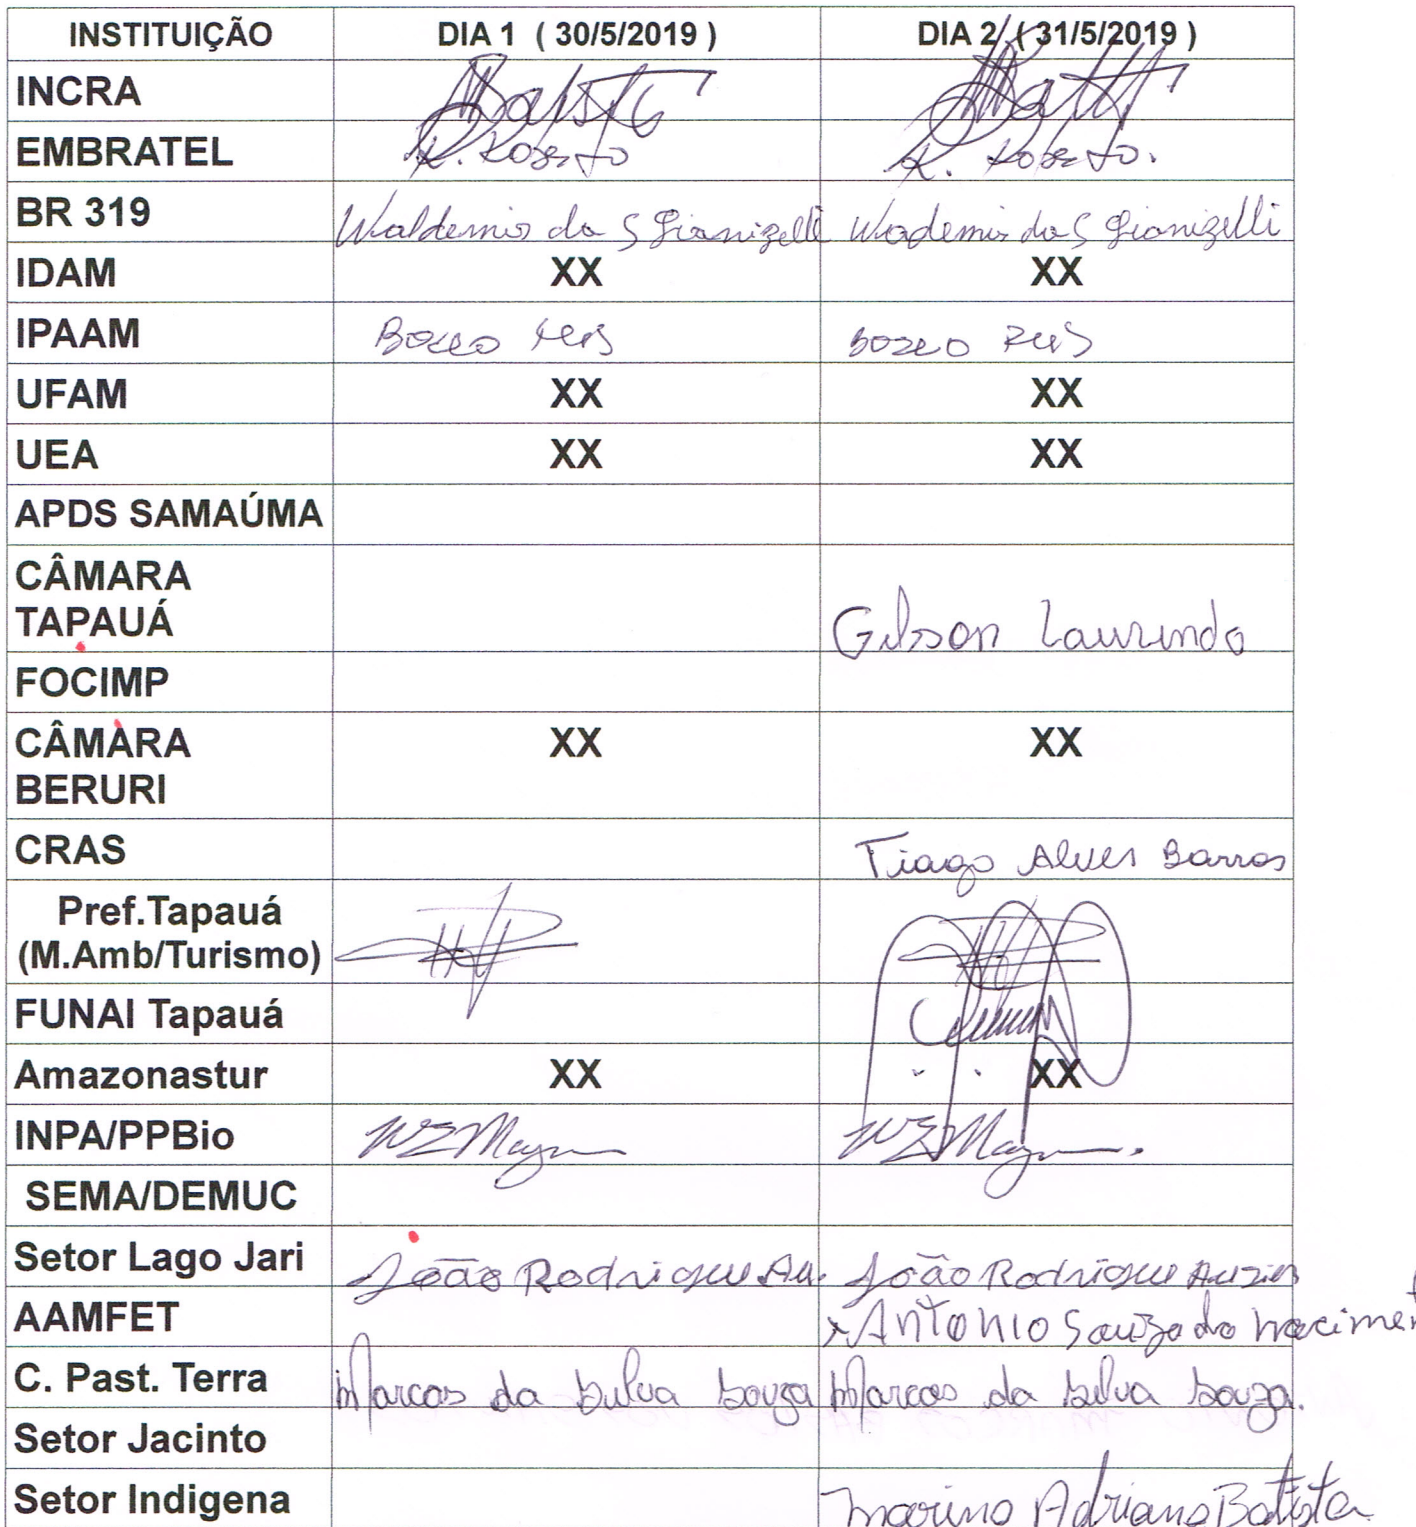 INSTITUIÇÃO DIA 1 ( 30/5/2019 ) DIA 2 ( 31/5/2019 )
INCRA
EMBRATEL R. Roberto R. Roberto.
BR 319 Waldemir da S Gianizelli Wademir da S Gianizelli
IDAM XX XX
IPAAM Bosco Reis Bosco Reis
UFAM XX XX
UEA XX XX
APDS SAMAÚMA
CÂMARA
TAPAUÁ Gilson Laurindo
FOCIMP
CÂMARA XX XX
BERURI
CRAS Tiago Alves Barros
Pref.Tapauá
(M.Amb/Turismo)
FUNAI Tapauá
Amazonastur XX XX
INPA/PPBio
SEMA/DEMUC
Setor Lago Jari João Rodrigue Au. João Rodrigue Auzier
AAMFET Antonio Souza do
C. Past. Terra Marcos da Silva Souza Marcos da Silva Souza.
Setor Jacinto
Setor Indigena Marino Adriano Batista